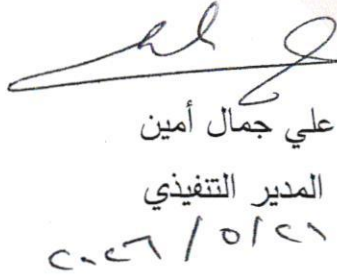 علي جمال أمين
المدير التنفيذي
٢٠٢٦ / ٥ / ٢١